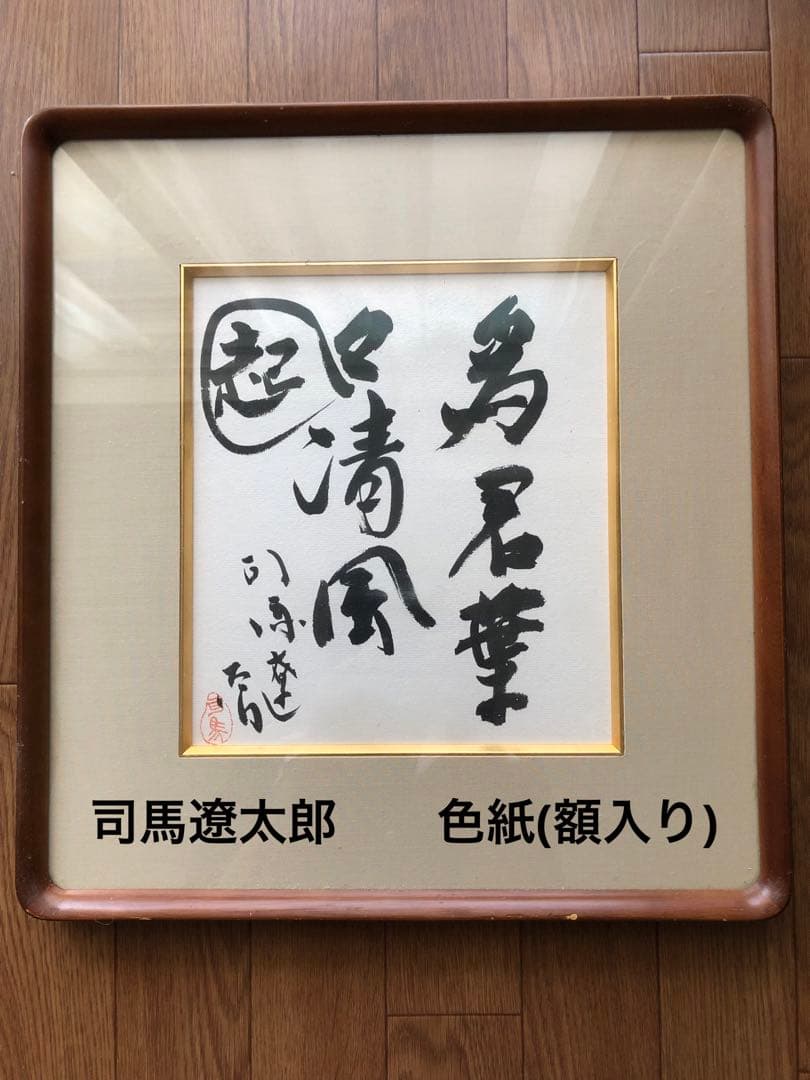 為君葉
々清風
起
司馬遼
太郎
司馬
司馬遼太郎 色紙(額入り)